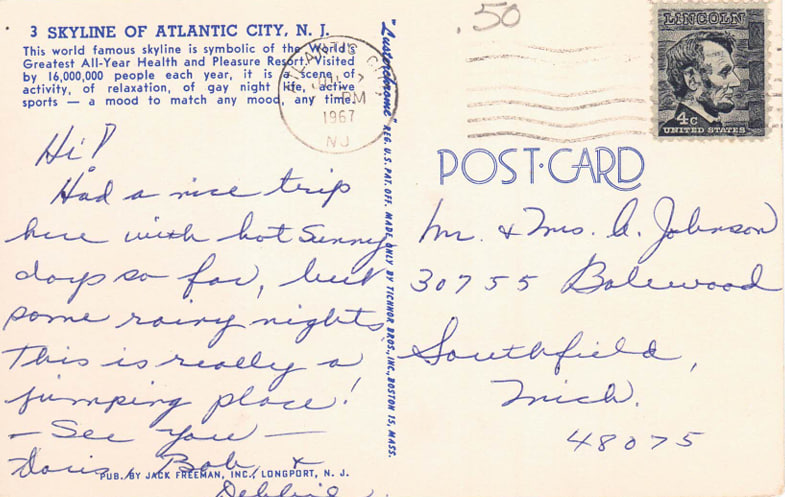 3 SKYLINE OF ATLANTIC CITY, N. J.
This world famous skyline is symbolic of the World's
Greatest All-Year Health and Pleasure Resort. Visited
by 16,000,000 people each year, it is a scene of
activity, of relaxation, of gay night life, active
sports — a mood to match any mood, any time.
ATLANTIC CITY
PM
1967
NJ
Hi!
Had a nice trip
here with hot Sunny
days so far, but
some rainy nights
This is really a
jumping place!
— See you —
Doris, Bob, &
Debbie
PUB. BY JACK FREEMAN, INC., LONGPORT, N. J.
"Lusterchrome" REG. U.S. PAT. OFF. MADE ONLY BY TICHNOR BROS., INC., BOSTON 15, MASS.
.50
LINCOLN
4c
UNITED STATES
POST-CARD
Mr. & Mrs. A. Johnson
30755 Balewood
Southfield,
Mich.
48075